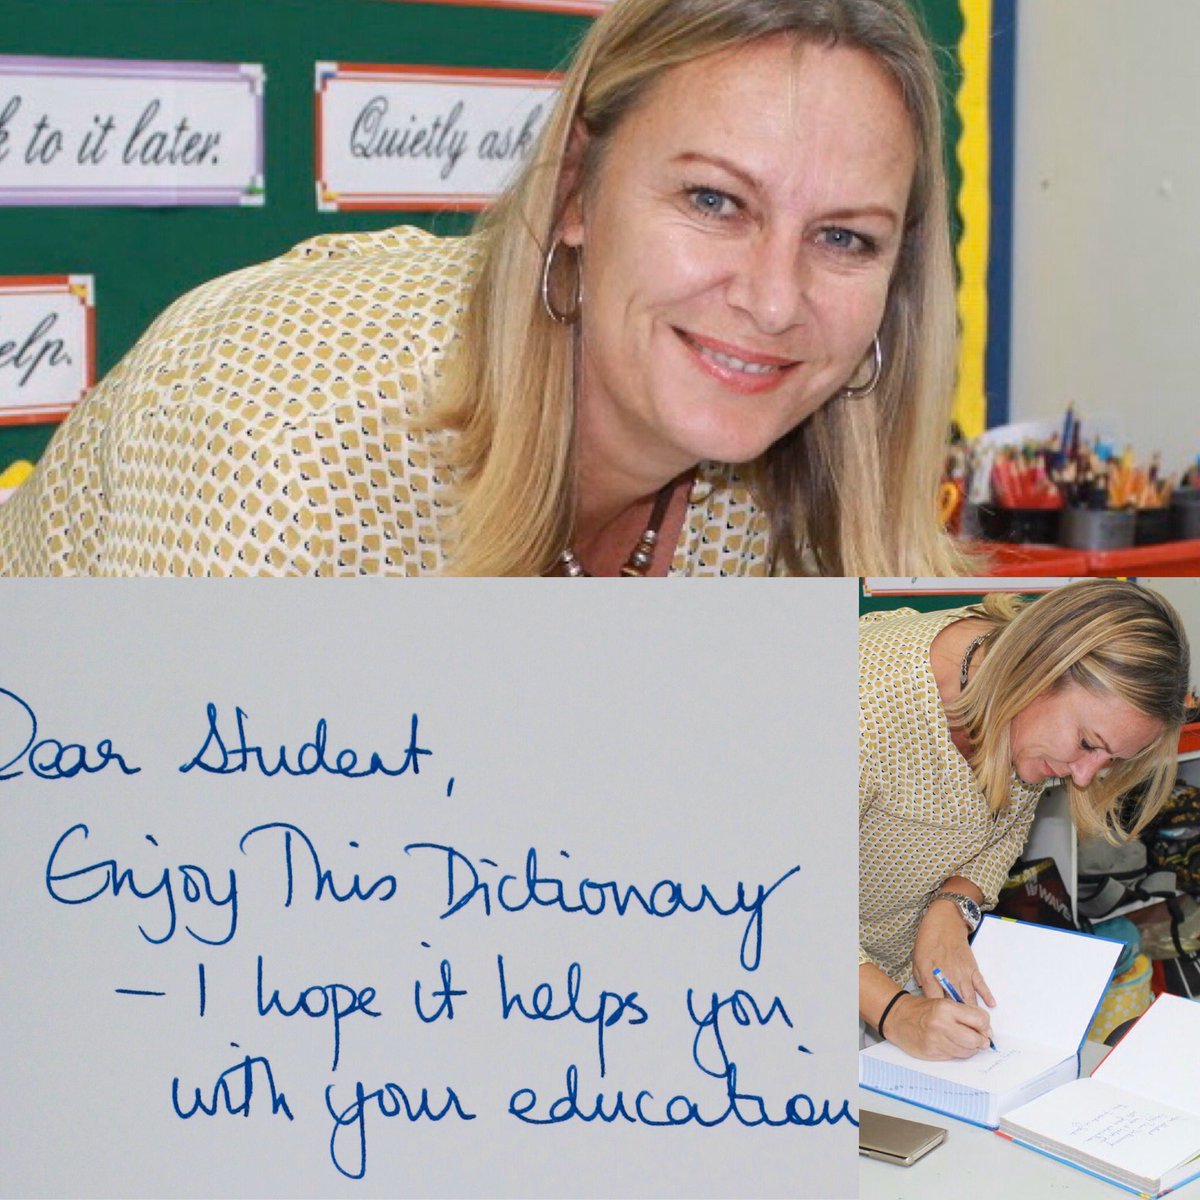 k to it later.
Quietly ask
elp.
Dear Student,
Enjoy This Dictionary
– I hope it helps you
with your education
WAVE